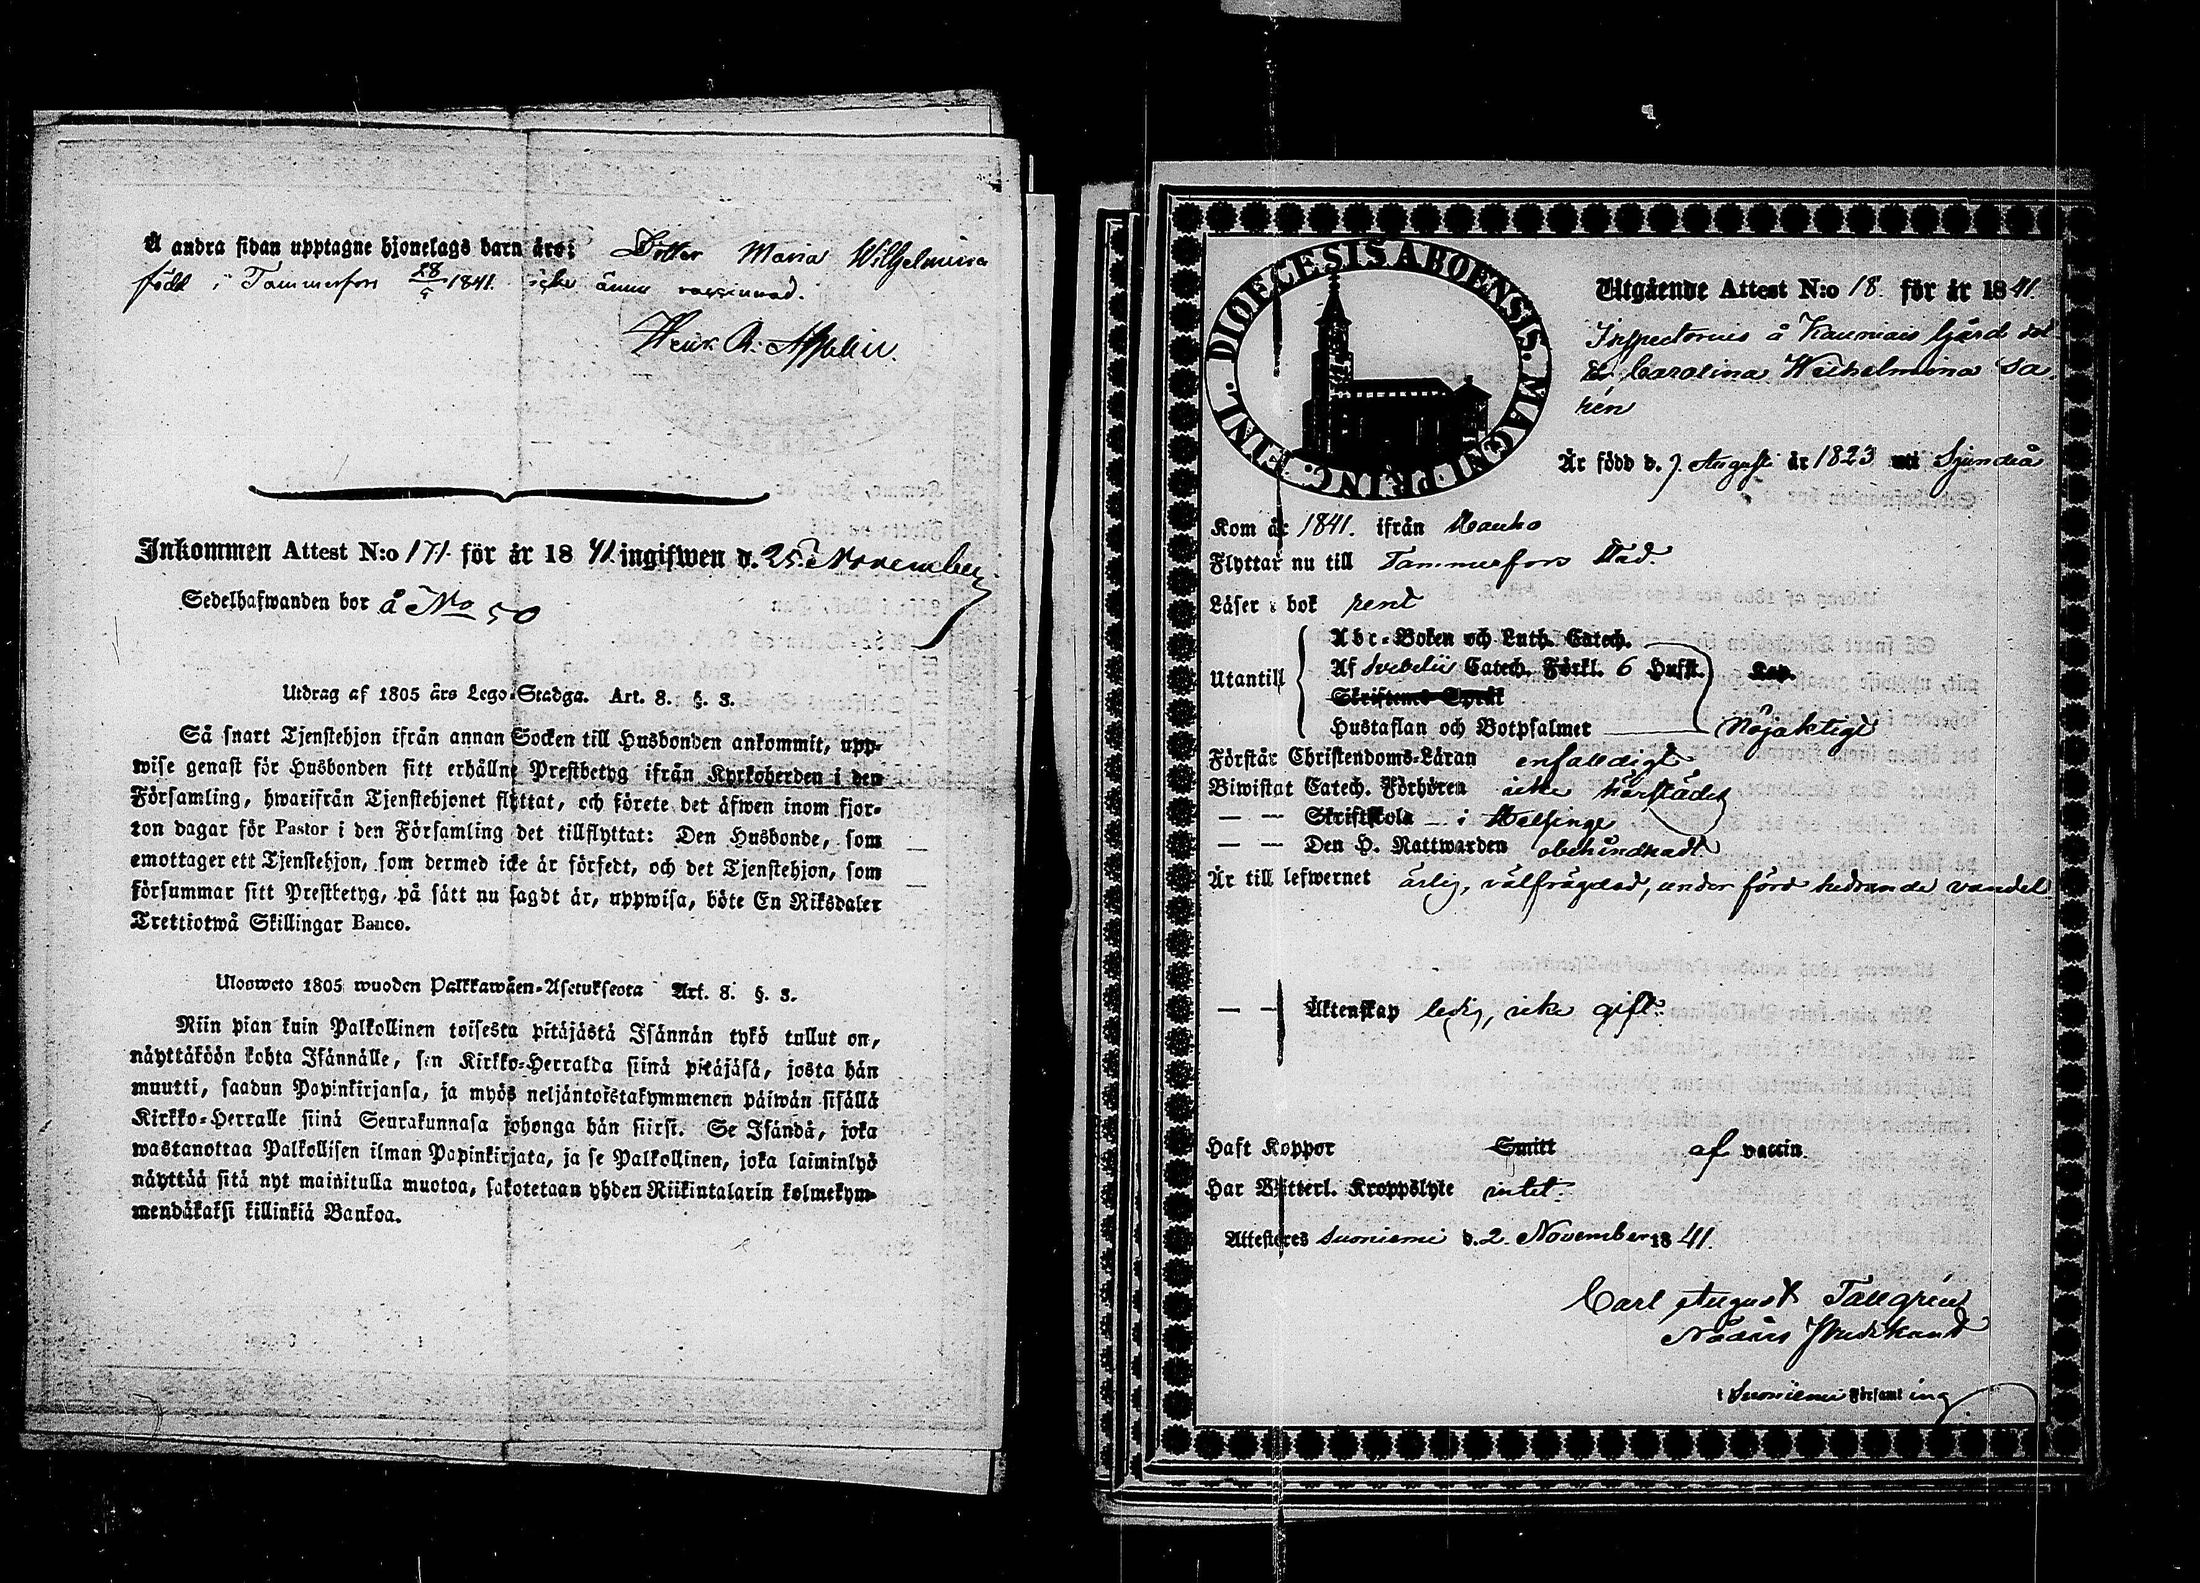 Å andra sidan upptagne hjonelags barn äro: Dotter Maria Wilhelmina
född i Tammerfors 28/5 1841. icke ännu vaccinerad.
Henr. A.
Inkommen Attest N:o 171 för år 1841 ingifwen d. 25. November
Sedelhafwanden bor å No 50
Utdrag af 1805 års Lego-Stadga. Art. 8. §. 3.
Så snart Tjenstehjon ifrån annan Socken till Husbonden ankommit, upp-
wise genast för Husbonden sitt erhållne Prestbetyg ifrån Kyrkoherden i den
Församling, hwarifrån Tjenstehjonet flyttat, och förete det äfwen inom fjor-
ton dagar för Pastor i den Församling det tillflyttat: Den Husbonde, som
emottager ett Tjenstehjon, som dermed icke är försedt, och det Tjenstehjon, som
försummar sitt Prestbetyg, på sätt nu sagdt är, uppwisa, böte En Riksdaler
Trettiotwå Skillingar Banco.
Ulosweto 1805 wuoden Palkkawäen-Asetuksesta Art. 8. §. 3.
Niin pian kuin Palkollinen toisesta pitäjästä Isännän tykö tullut on,
näyttäköön kohta Isännälle, sen Kirkko-Herralda siinä pitäjäsä, josta hän
muutti, saadun Papinkirjansa, ja myös neljäntoistakymmenen päiwän sisällä
Kirkko-Herralle siinä Seurakunnasa johonga hän siirsi. Se Isändä, joka
wastanottaa Palkollisen ilman Papinkirjata, ja se Palkollinen, joka laiminlyö
näyttää sitä nyt mainitulla muotoa, sakotetaan yhden Riikintalarin kolmekym-
mendäkaksi killinkiä Bankoa.
DIOECESIS ABOENSIS. MAGNI PRINC. FINL.
Utgående Attest N:o 18. för år 1841.
Inspectorns å Kauniais gård dot
ter Carolina Wilhelmina Sa
hén
Är född d. 7 Augusti år 1823 uti Sjundeå
Kom år 1841. ifrån Kauko
Flyttar nu till Tammerfors Stad.
Läser i bok rent
Utantill
Abc-Boken och Luth. Catech.
Af Svebelii Catech. Förkl. 6 Hufst. Kap.
Skriftens Språk
Hustaflan och Botpsalmer Nöjaktigt
Förstår Christendoms-Läran enfaldigt
Biwistat Catech. Förhören icke härstädes
— — Skriftskola — i Helsinge
— — Den H. Nattwarden obehindradt.
Är till lefwernet ärlig, välfrägdad, under förd hedrande vandel
— — Äktenskap ledig, icke gift.
Haft Koppor Smitt af vaccin
Har Witterl. Kroppslyte intet.
Attesteres Suoniemi d. 2. November 1841.
Carl August Tallgrén
Nådårs Predikant
i Suoniemi Församling